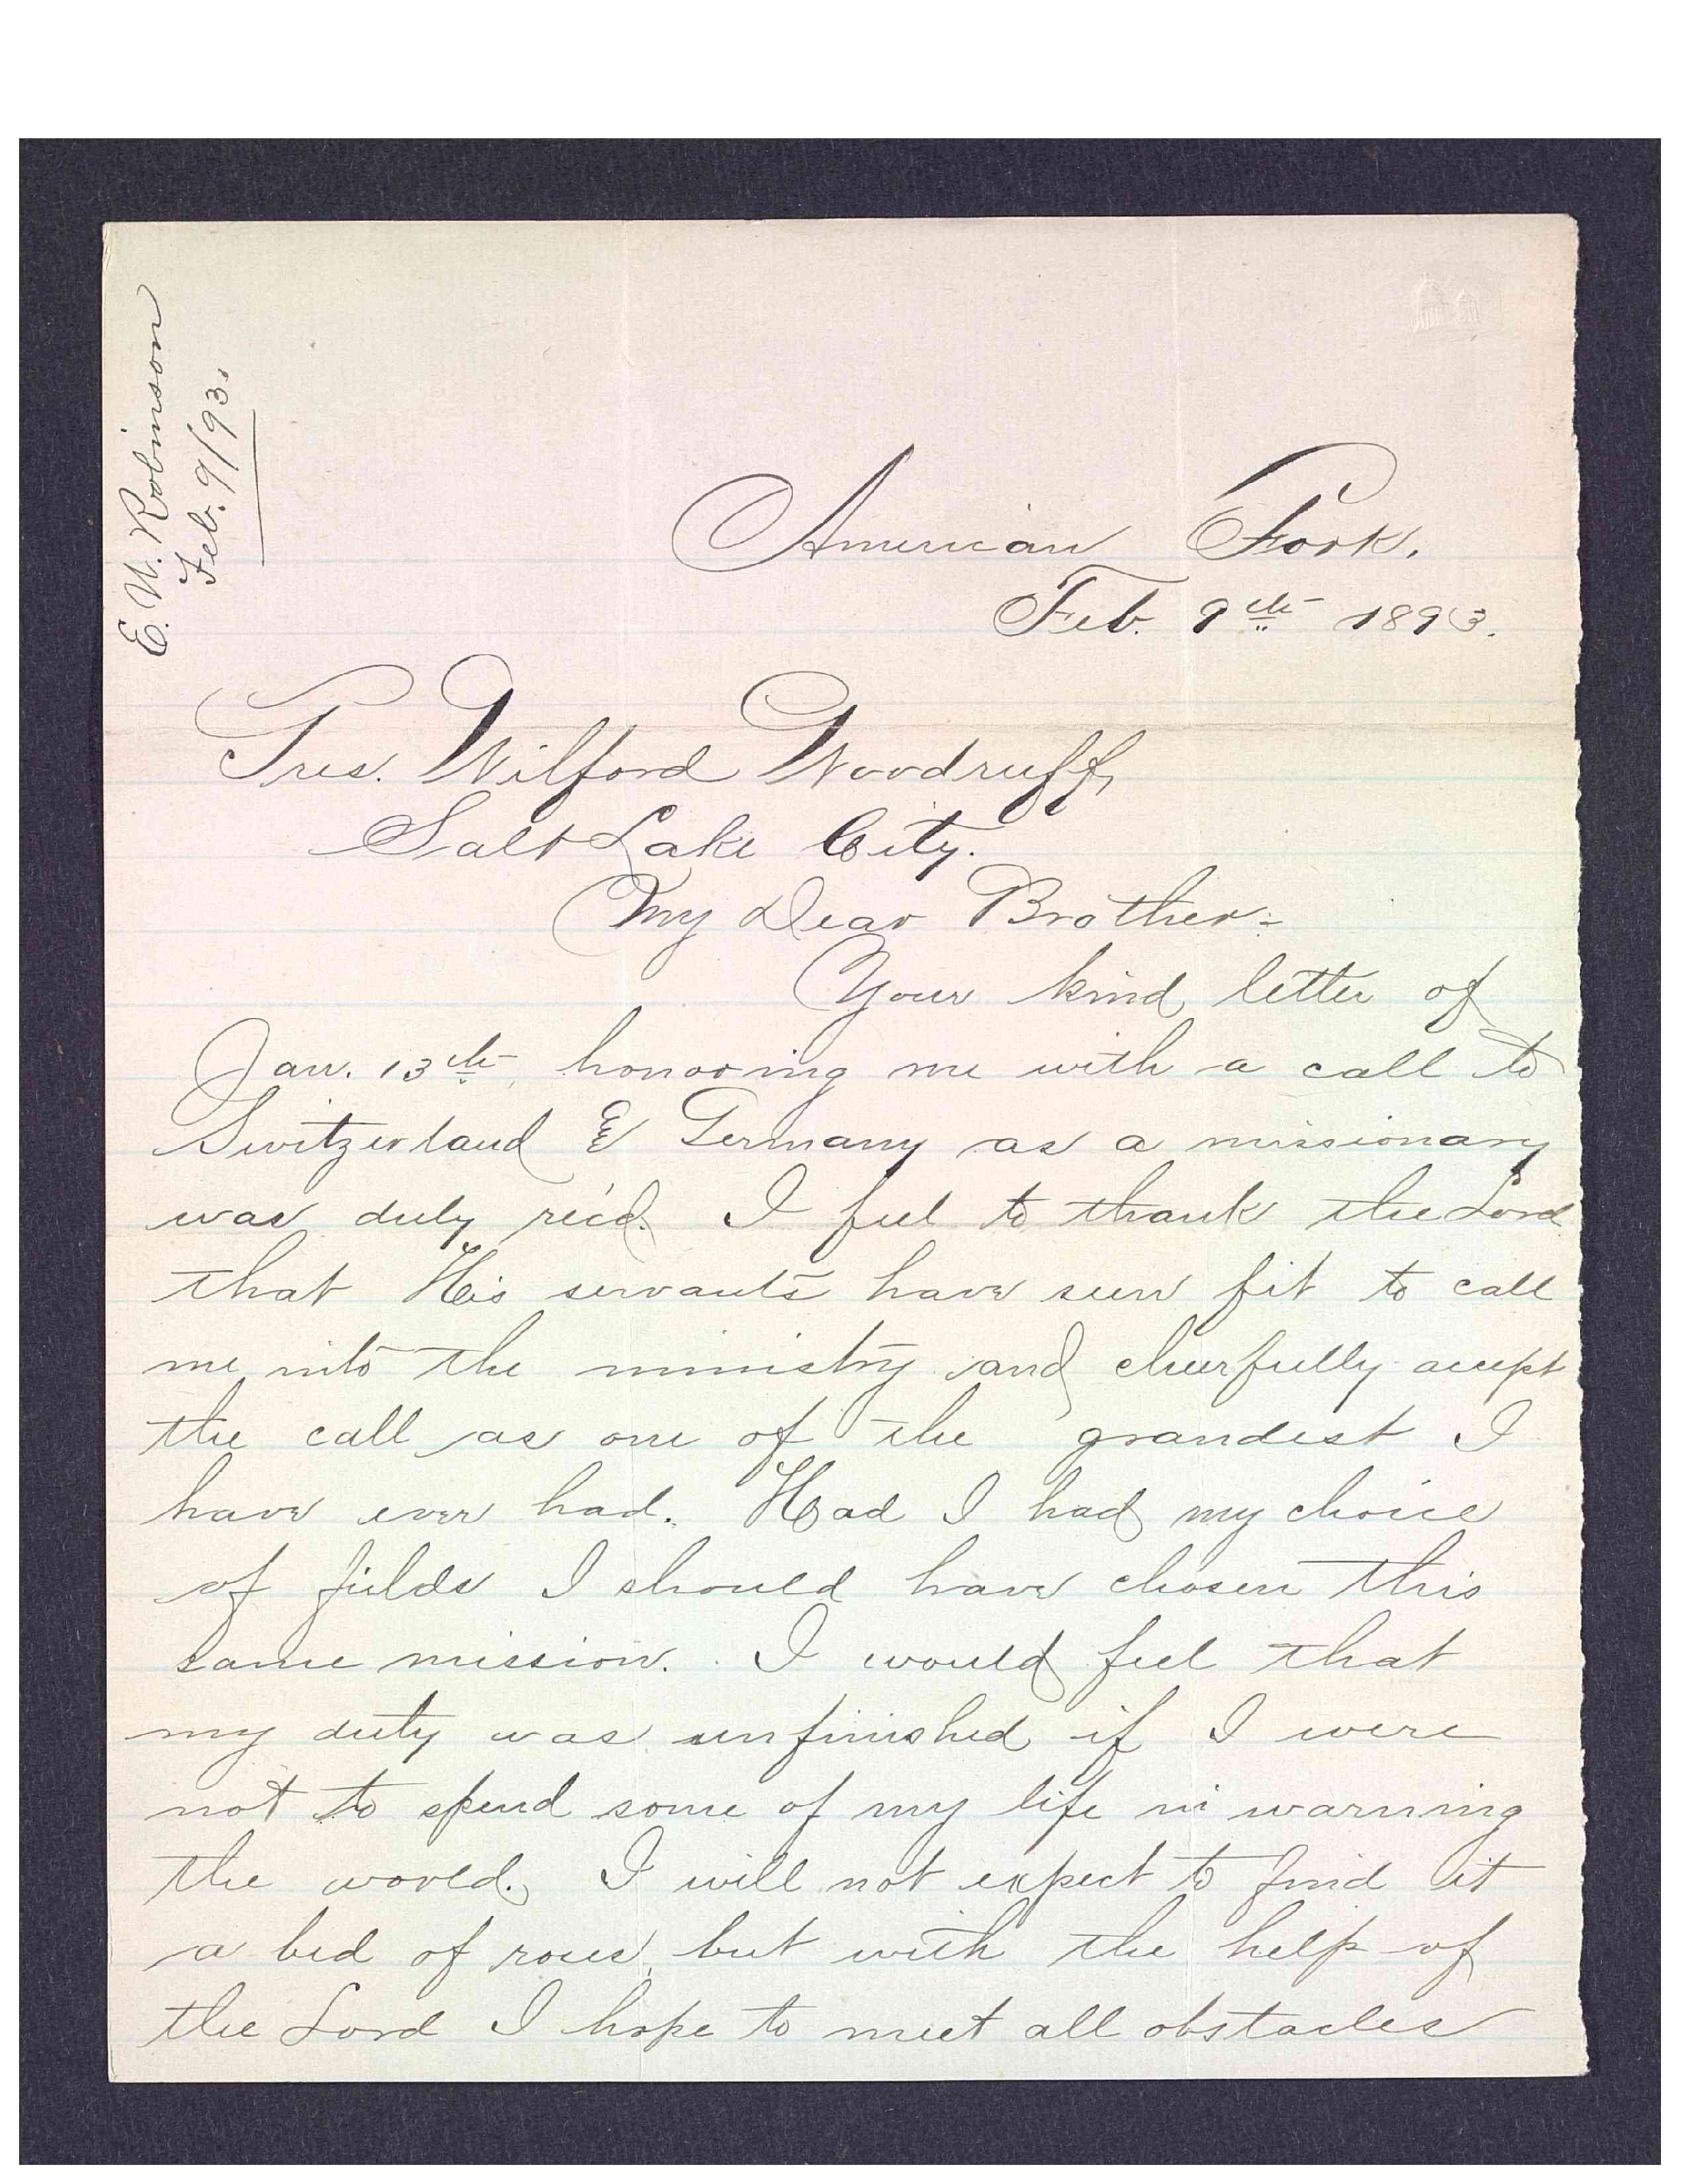 E. N. Robinson
Feb. 9/93.
American Fork.
Feb. 9th 1893.
Pres. Wilford Woodruff,
Salt Lake City.
My Dear Brother:-
Your kind letter of
Jan. 13th, honoring me with a call to
Switzerland & Germany as a missionary
was duly rec'd. I feel to thank the Lord
that His servants have seen fit to call
me into the ministry and cheerfully accept
the call as one of the grandest I
have ever had. Had I had my choice
of fields I should have chosen this
same mission. I would feel that
my duty was unfinished if I were
not to spend some of my life in warning
the world. I will not expect to find it
a bed of roses, but with the help of
the Lord I hope to meet all obstacles